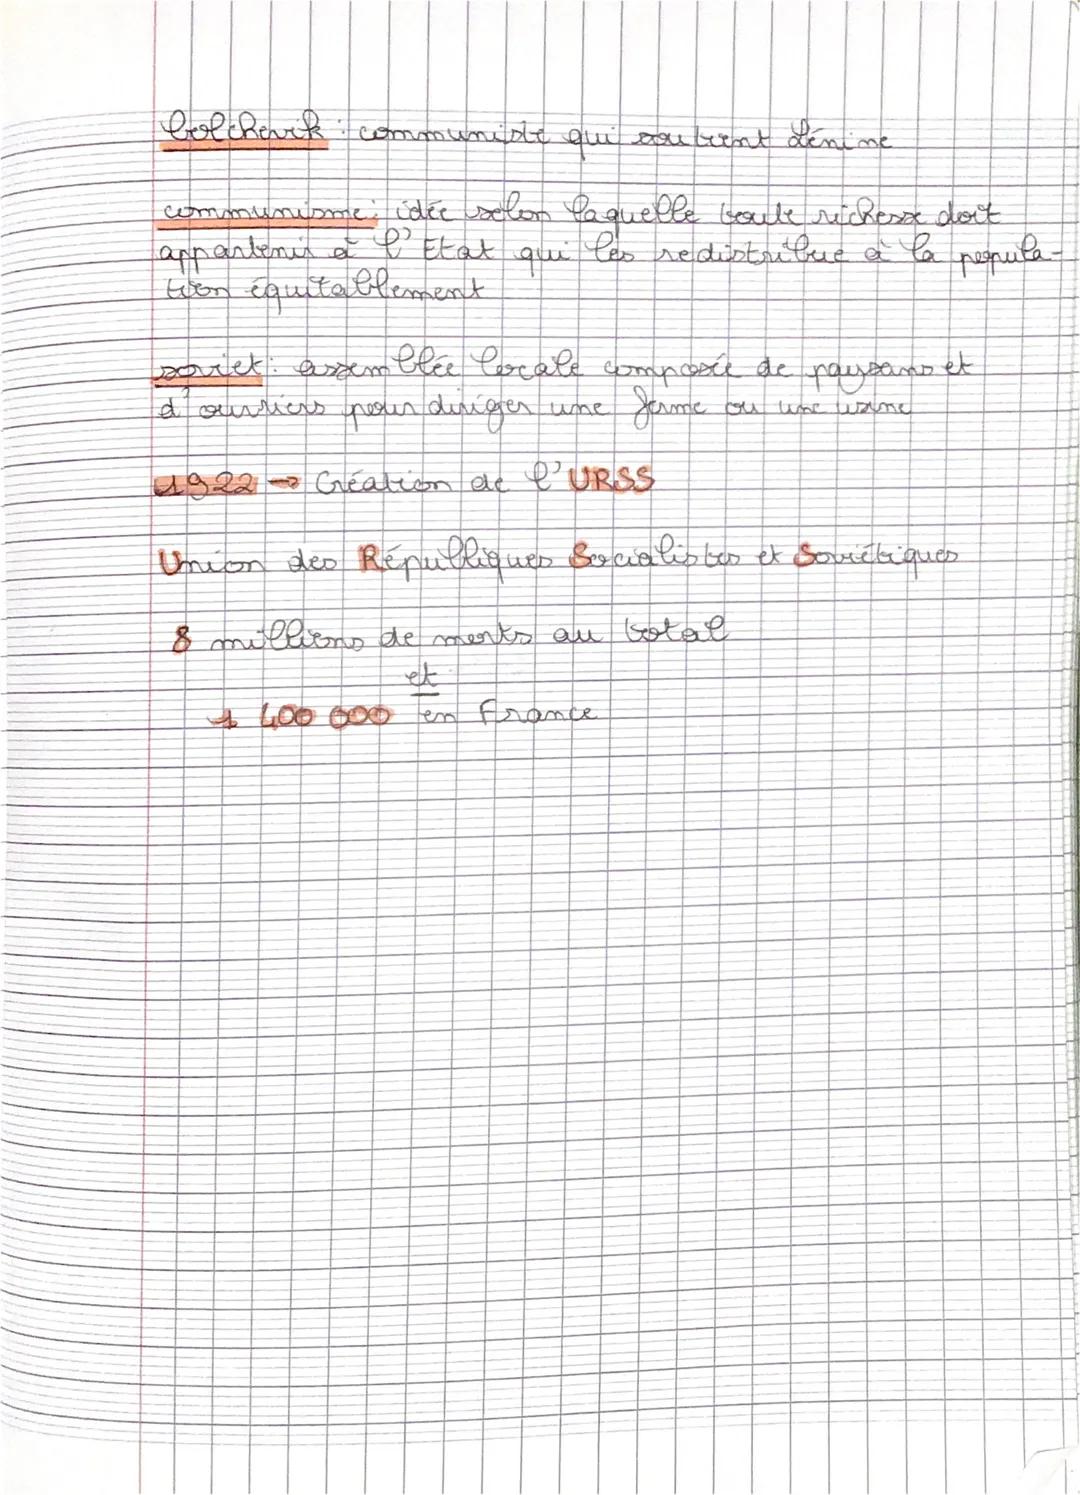 bolchevik : communiste qui soutient Lénine
communisme : idée selon laquelle toute richesse doit
appartenir à l'Etat qui les redistribue à la popula-
tion équitablement
soviet : assemblée locale composée de paysans et
d'ouvriers pour diriger une ferme ou une usine
1922 → Création de l'URSS
Union des Républiques Socialistes et Soviétiques
8 millions de morts au total
et
1 400 000 en France